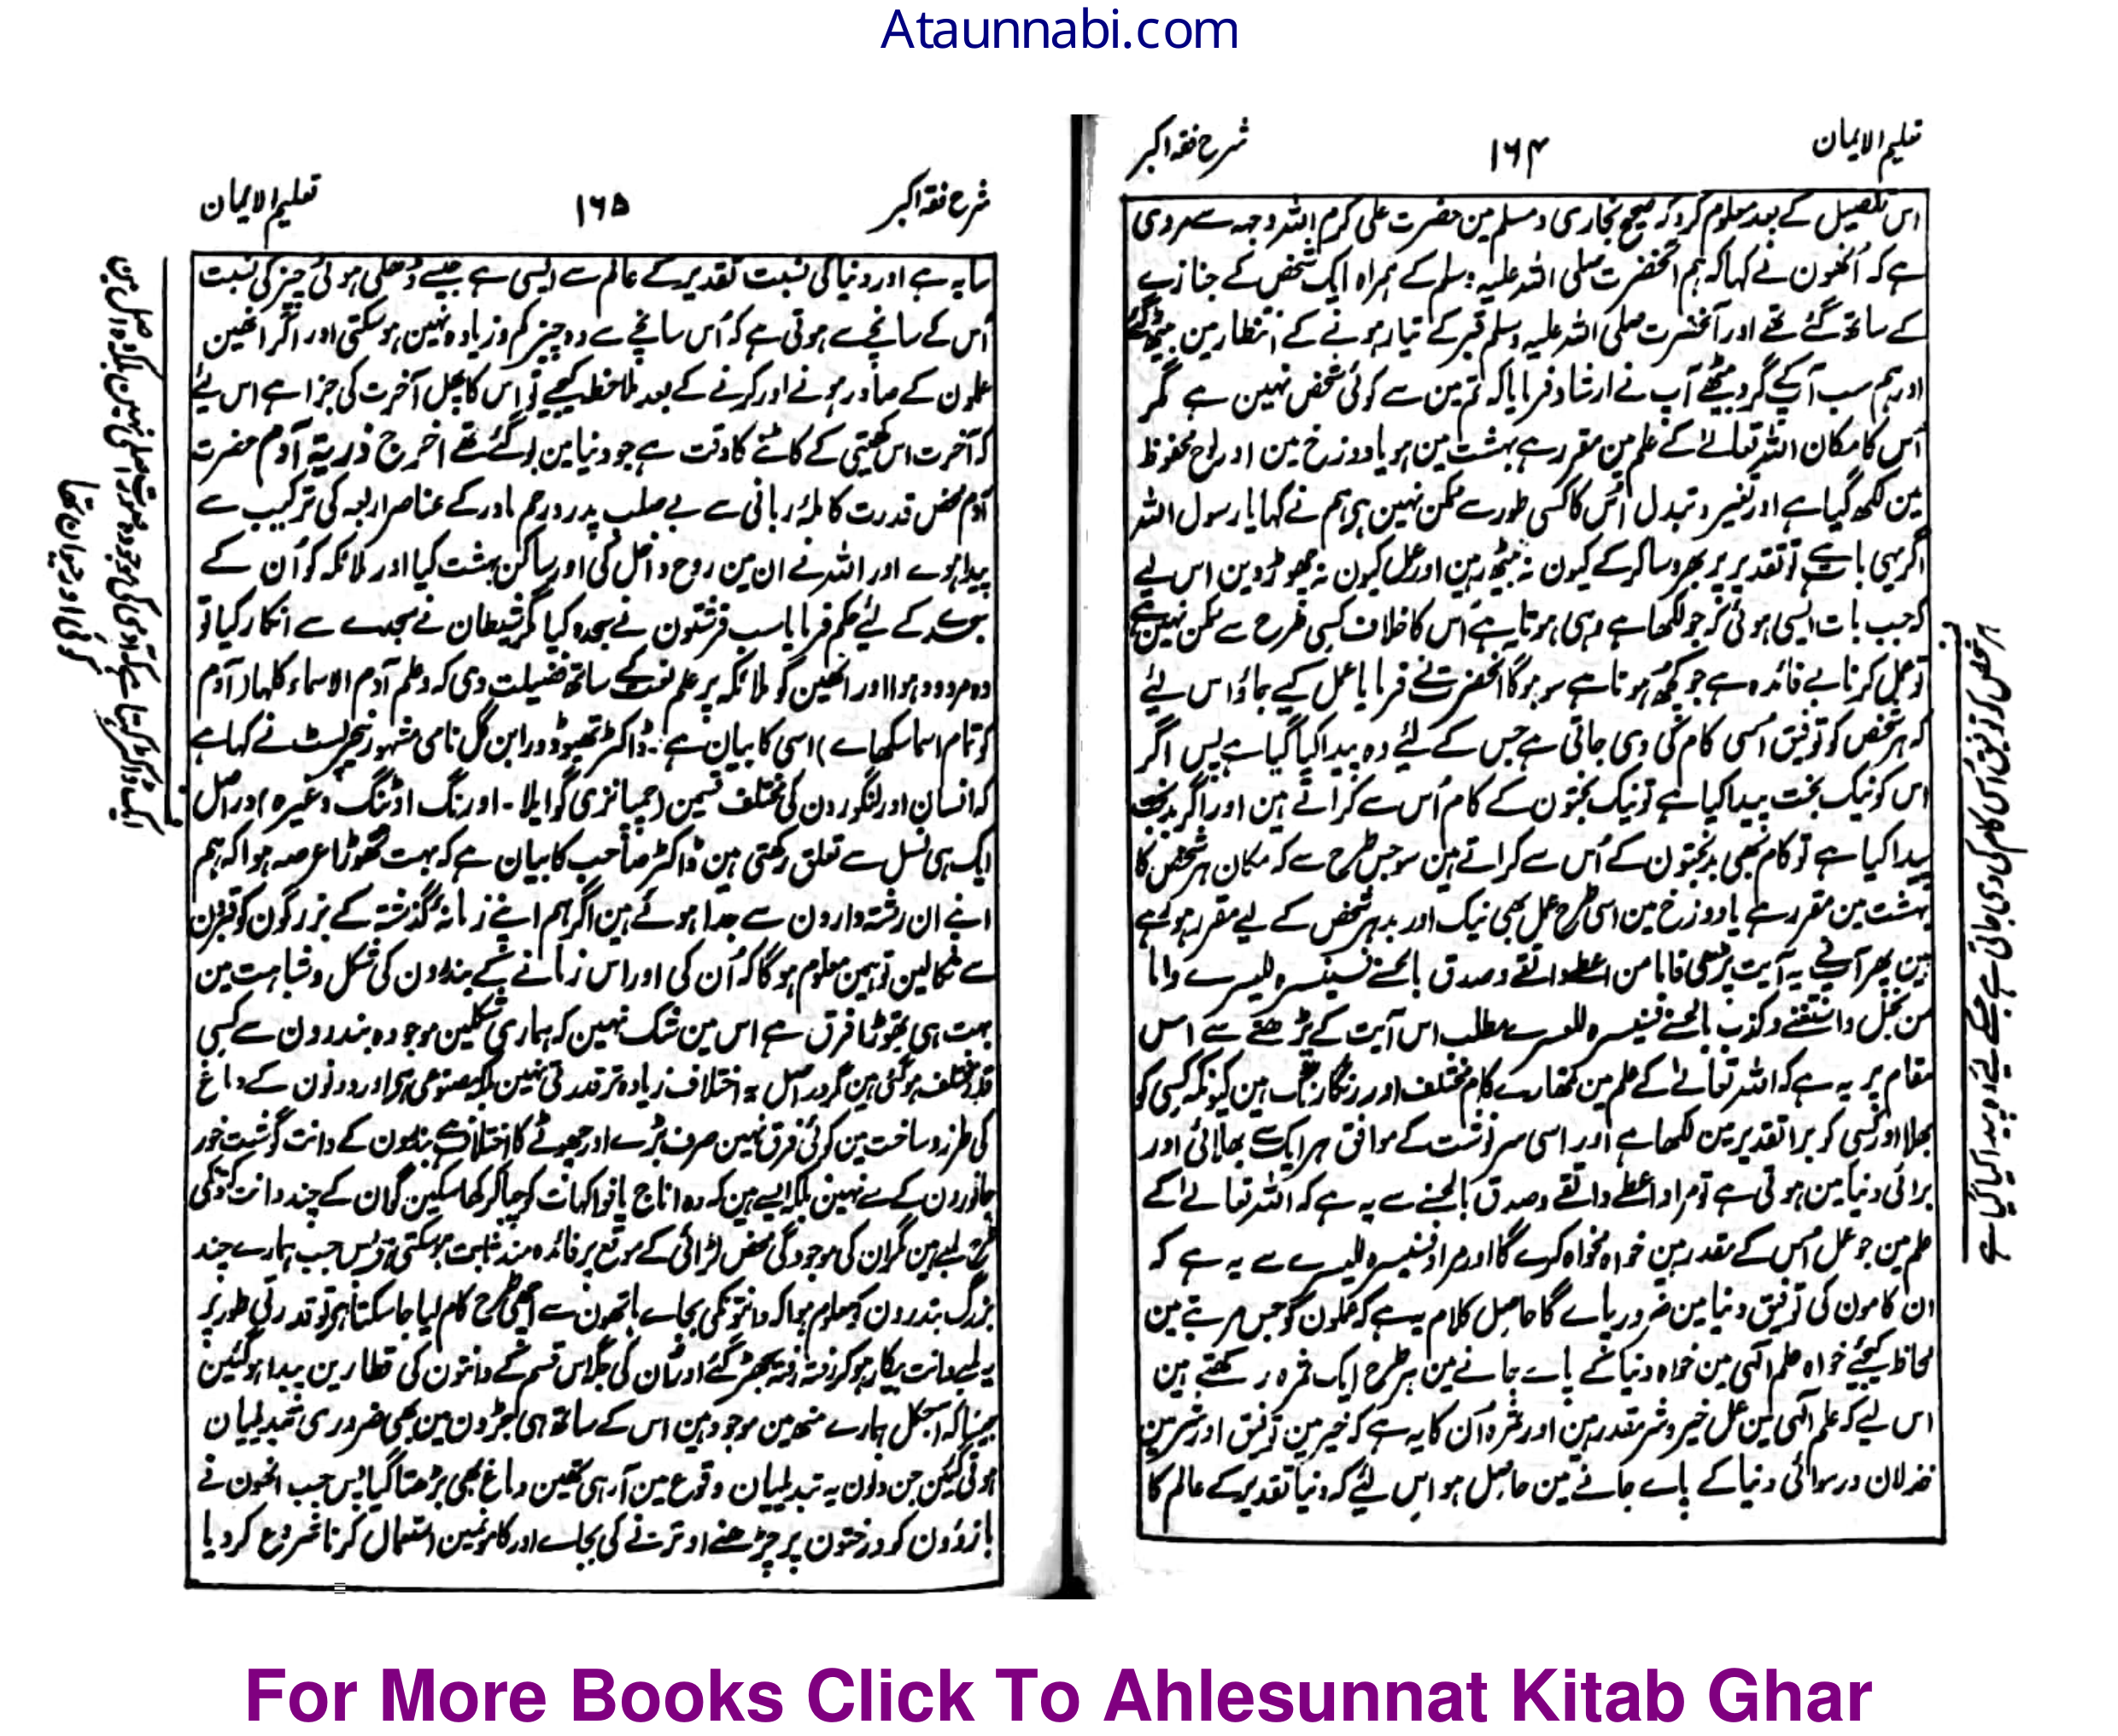 Ataunnabi.com
تعلیم الایمان ۱۶۴ شرح فقہ اکبر
اس تفصیل کے بعد معلوم کرو کہ صحیح بخاری و مسلم مین حضرت علی کرم اللہ وجہہ سے مروی
ہے کہ اُنھون نے کہا کہ ہم آنحضرت صلی اللہ علیہ وسلم کے ہمراہ ایک شخص کے جنازے
کے ساتھ گئے تھے اور آنحضرت صلی اللہ علیہ وسلم قبر کے تیار ہونے کے انتظار مین بیٹھ گئے
اور ہم سب آپ کے گرد بیٹھے آپ نے ارشاد فرمایا کہ تم مین سے کوئی شخص نہین ہے مگر
اُس کا مکان اللہ تعالےٰ کے علم مین مقرر ہے بہشت مین ہو یا دوزخ مین اور لوح محفوظ
مین لکھ گیا ہے اور تغیر و تبدل اُس کا کسی طور سے ممکن نہین ہی ہم نے کہا یا رسول اللہ
اگر یہی بات ہے تو تقدیر پر بھروسا کر کے کیون نہ بیٹھ رہین اور عمل کیون نہ چھوڑ دین اس لیے
کہ جب بات ایسی ہوئی کہ جو لکھا ہے وہی ہوتا ہے اُس کا خلاف کسی طرح سے ممکن نہین ہے
تو عمل کرنا بے فائدہ ہے جو کچھ ہونا ہے سو ہوگا آنحضرت نے فرمایا عمل کیے جاؤ اس لیے
کہ ہر شخص کو توفیق اُسی کام کی دی جاتی ہے جس کے لیے وہ پیدا کیا گیا ہے پس اگر
اس کو نیک بخت پیدا کیا ہے تو نیک بختون کے کام اُس سے کراتے ہین اور اگر بدبخت
پیدا کیا ہے تو کام بھی بدبختون کے اُس سے کراتے ہین سو جس طرح سے کہ مکان ہر شخص کا
بہشت مین مقرر ہے یا دوزخ مین اسی طرح عمل بھی نیک اور بد ہر شخص کے لیے مقرر ہو چکے
ہین پھر آپ نے یہ آیت پڑھی فاما من اعطے واتقے وصدق بالحسنے فسنیسرہ للیسرے واما
من بخل واستغنے وکذب بالحسنے فسنیسرہ للعسرے مطلب اس آیت کے پڑھنے سے اس
مقام پر یہ ہے کہ اللہ تعالےٰ کے علم مین تمھارے کام مختلف اور رنگا رنگ ہین کیونکہ کسی کو
بھلا اور کسی کو برا تقدیر مین لکھا ہے اور اسی سرنوشت کے موافق ہر ایک سے بھلائی اور
برائی دنیا مین ہوتی ہے تو مراد اعطے واتقے وصدق بالحسنے سے یہ ہے کہ اللہ تعالےٰ کے
علم مین جو عمل اُس کے مقدر ہین خواہ مخواہ کرے گا اور مراد فسنیسرہ للیسرے سے یہ ہے کہ
ان کامون کی توفیق دنیا مین ضرور پاے گا حاصل کلام یہ ہے کہ عملون کو جس مرتبے مین
لحاظ کیجئے خواہ علم الٰہی مین خواہ دنیا کے پاے جانے مین ہر طرح ایک ثمرہ رکھتے ہین
اس لیے کہ علم الٰہی مین عمل خیر و شر مقدر ہین اور ثمرہ اُن کا یہ ہے کہ خیر مین توفیق اور شر مین
خذلان و رسوائی دنیا کے پاے جانے مین حاصل ہو اس لیے کہ دنیا تقدیر کے عالم کا
ہر شخص کو توفیق اُس کام کی دی جاتی ہے جسکے لیے وہ پیدا کیا گیا ہے
شرح فقہ اکبر ۱۶۵ تعلیم الایمان
سایہ ہے اور دنیا کی نسبت تقدیر کے عالم سے ایسی ہے جیسے ڈھلی ہوئی چیز کی نسبت
اُس کے سانچے سے ہوتی ہے کہ اُس سانچے سے وہ چیز کم و زیادہ نہین ہو سکتی اور اگر انھین
عملون کے صادر ہونے اور کرنے کے بعد ملاحظہ کیجیے تو اس کا پھل آخرت کی جزا ہے اس لیے
کہ آخرت اس کھیتی کے کاٹنے کا وقت ہے جو دنیا مین بو گئے تھے اخرج ذریۃ آدم حضرت
آدم محض قدرت کاملۂ ربانی سے بے صلب پدر و رحم مادر کے عناصر اربعہ کی ترکیب سے
پیدا ہوے اور اللہ نے ان مین روح داخل کی اور ساکن بہشت کیا اور ملائکہ کو اُن کے
سجدے کے لیے حکم فرمایا سب فرشتون نے سجدہ کیا مگر شیطان نے سجدے سے انکار کیا تو
وہ مردود ہوا اور انھین کو ملائکہ پر علم لغت کے ساتھ فضیلت دی کہ وعلم آدم الاسماء کلہا (ر آدم
کو تمام اسما سکھاے) اسی کا بیان ہے۔ ڈاکٹر تھیوڈور ابن گل نامی مشہور نیچرلسٹ نے کہا ہے
کہ انسان اور لنگورون کی مختلف قسمین (چمپانزی گوایلا۔ اورنگ اوٹنگ وغیرہ) دراصل
ایک ہی نسل سے تعلق رکھتی ہین ڈاکٹر صاحب کا بیان ہے کہ بہت تھوڑا عرصہ ہوا کہ ہم
اپنے ان رشتہ دارون سے جدا ہوئے ہین اگر ہم اپنے زمانۂ گذشتہ کے بزرگون کو قبرون
سے نکالین تو ہمین معلوم ہوگا کہ اُن کی اور اس زمانے کے بندرون کی شکل و شباہت مین
بہت ہی تھوڑا فرق ہے اس مین شک نہین کہ ہماری شکلین موجودہ بندرون سے کسی
قدر مختلف ہو گئی ہین مگر دراصل یہ اختلاف زیادہ تر قدرتی نہین بلکہ مصنوعی ہی اور دونون کے دماغ
کی طرز و ساخت مین کوئی فرق نہین صرف بڑے اور چھوٹے کا اختلاف ہے بندرون کے دانت گوشت خور
جانورون کے سے نہین بلکہ ایسے ہین کہ وہ اناج یا فواکہات کو چبا کر کھا سکین گو ان کے چند دانت کتون کی
طرح لمبے ہین مگر ان کی موجودگی محض لڑائی کے موقع پر فائدہ مند ثابت ہو سکتی ہی پس جب ہمارے چند
بزرگ بندرون کو معلوم ہوا کہ دانتون کی بجاے ہاتھون سے اچھی طرح کام لیا جا سکتا ہی تو قدرتی طور پر
یہ لمبے دانت بیکار ہو کر رفتہ رفتہ جھڑ گئے اور ان کی جگہ اس قسم کے دانتون کی قطارین پیدا ہو گئین
جیسا کہ آجکل ہمارے منھ مین موجود ہین اس کے ساتھ ہی جبڑون مین بھی ضروری تبدیلیان
ہوتی گئین جن دنون یہ تبدیلیان وقوع مین آ رہی تھین دماغ بھی بڑھتا گیا پس جب انھون نے
بازوؤن کو درختون پر چڑھنے اور اترنے کی بجاے اور کامونمین استعمال کرنا شروع کر دیا
For More Books Click To Ahlesunnat Kitab Ghar